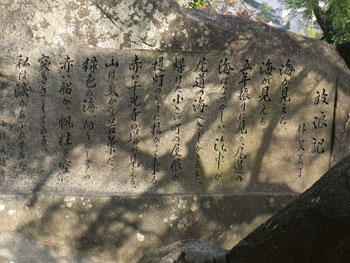 放浪記
林芙美子
海が見えた
海が見える
五年振りに見る尾道の
海はなつかしい汽車が
尾道の海へさしかかると
煤けた小さい町の屋根が
提灯のように拡がって来る
赤い千光寺の塔が見える
山は爽かな若葉だ
緑色の海向うにドックの
赤い船が帆柱を空に
突きさしている
私は涙があふれていた